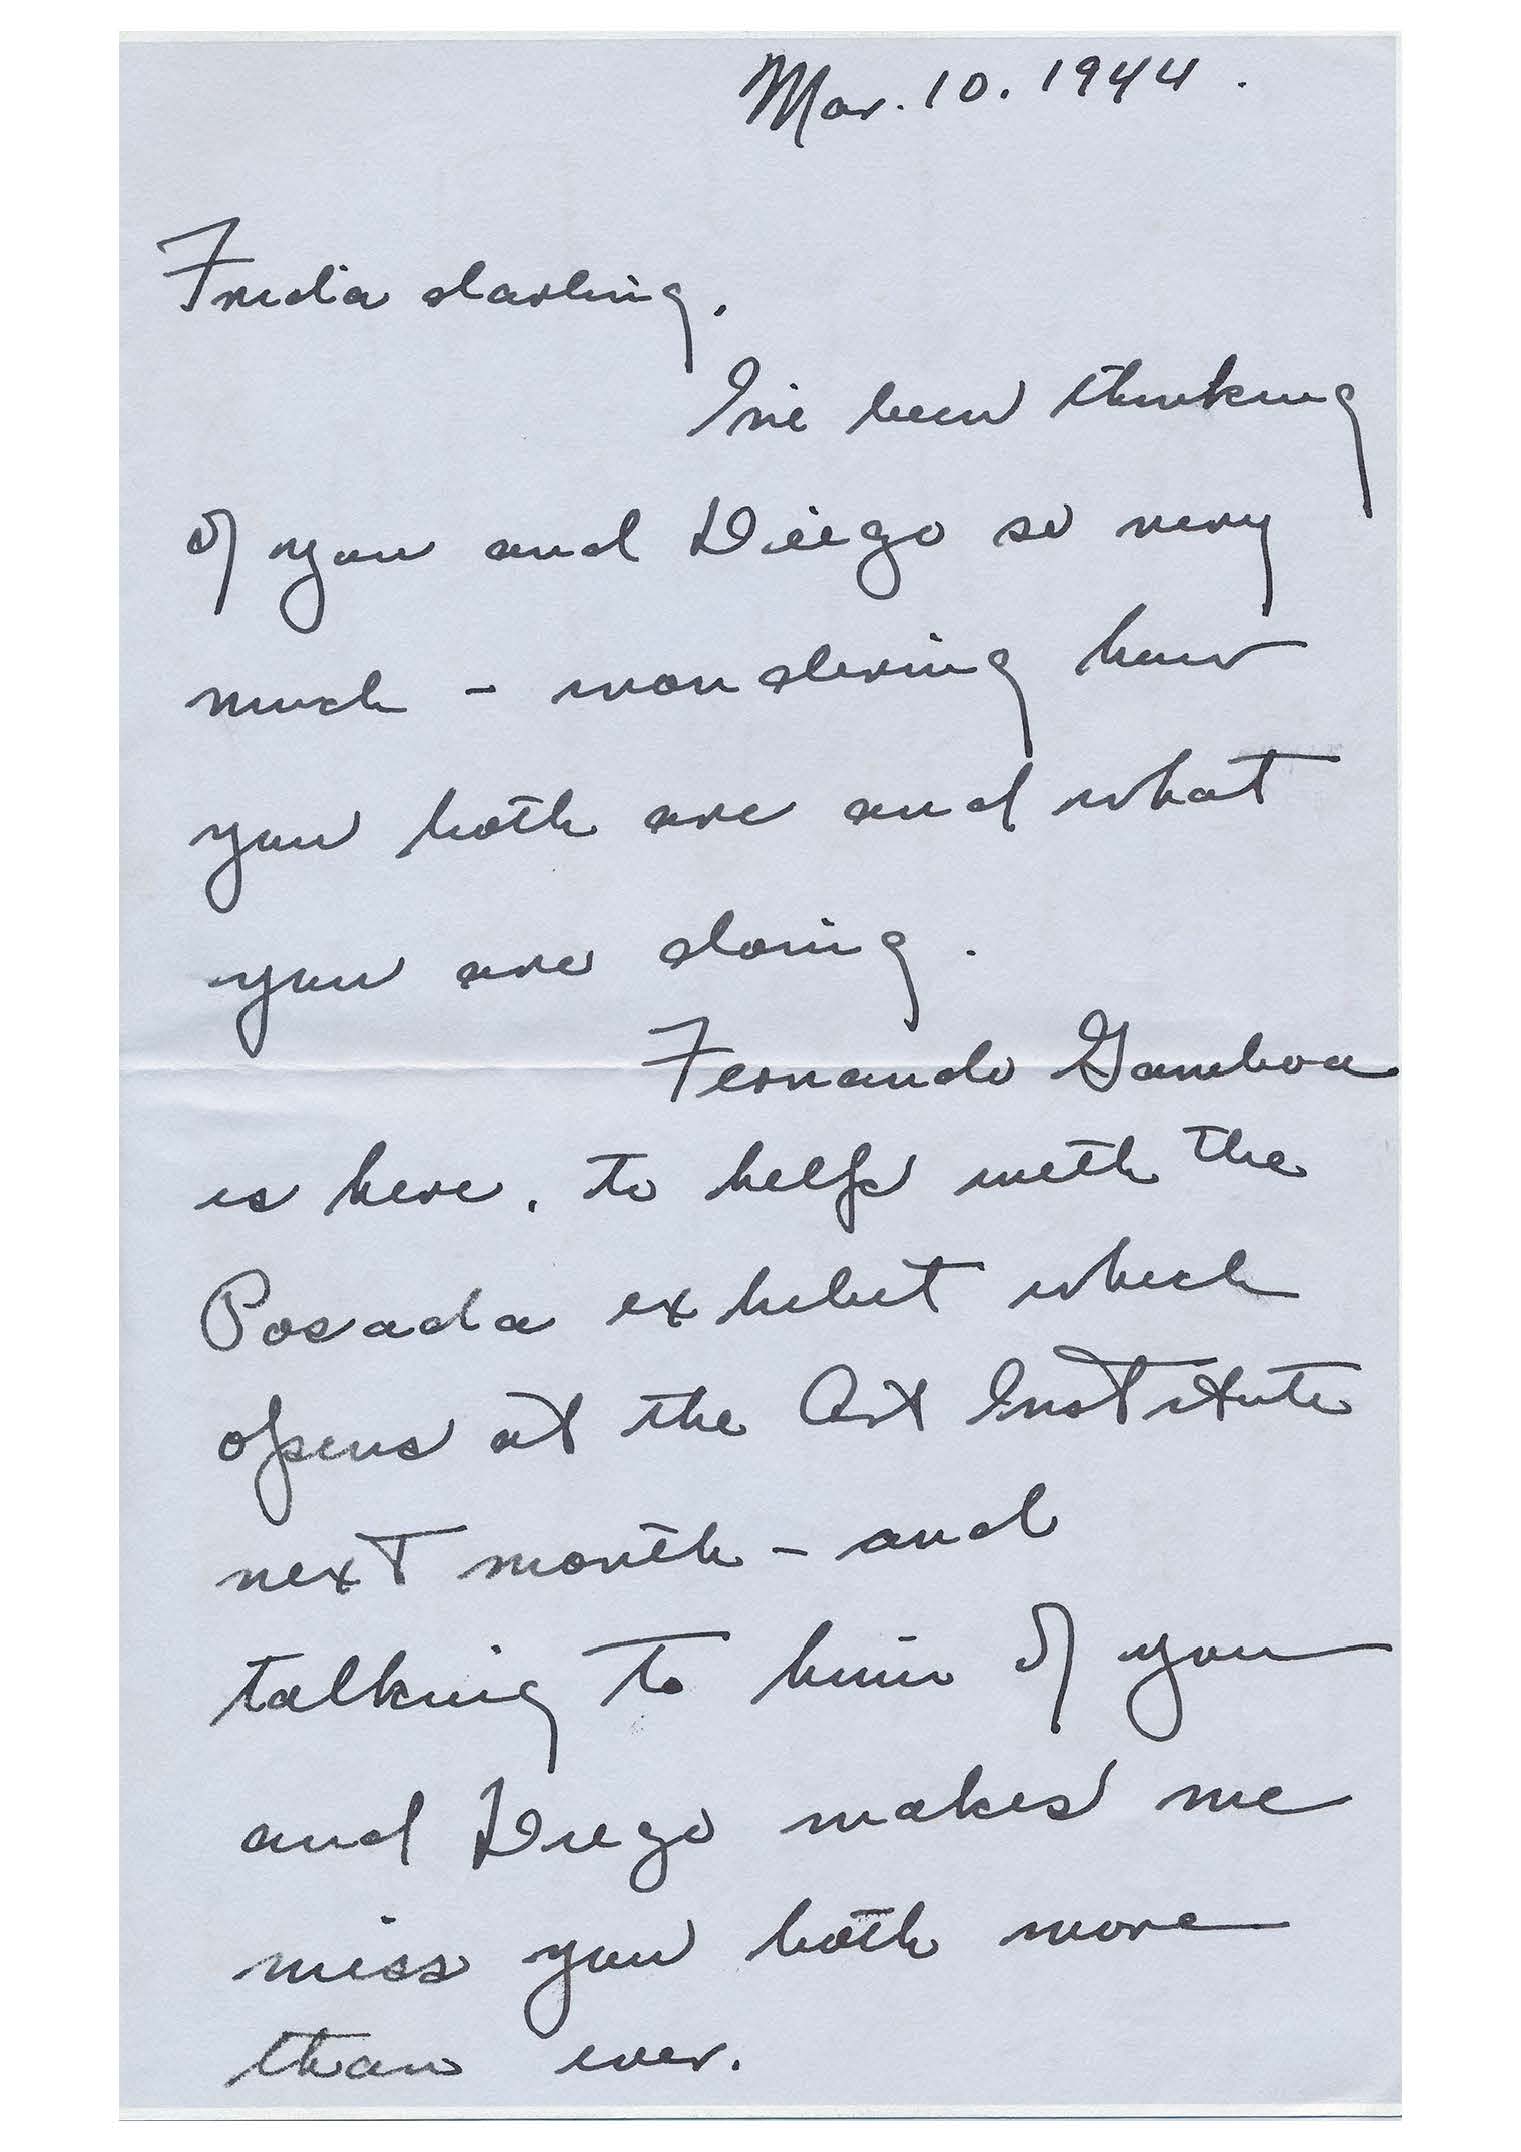 Mar. 10. 1944.
Frida darling,
I've been thinking
of you and Diego so very
much - wondering how
you both are and what
you are doing.
Fernando Gamboa
is here, to help with the
Posada exhibit which
opens at the Art Institute
next month - and
talking to him of you
and Diego makes me
miss you both more
than ever.